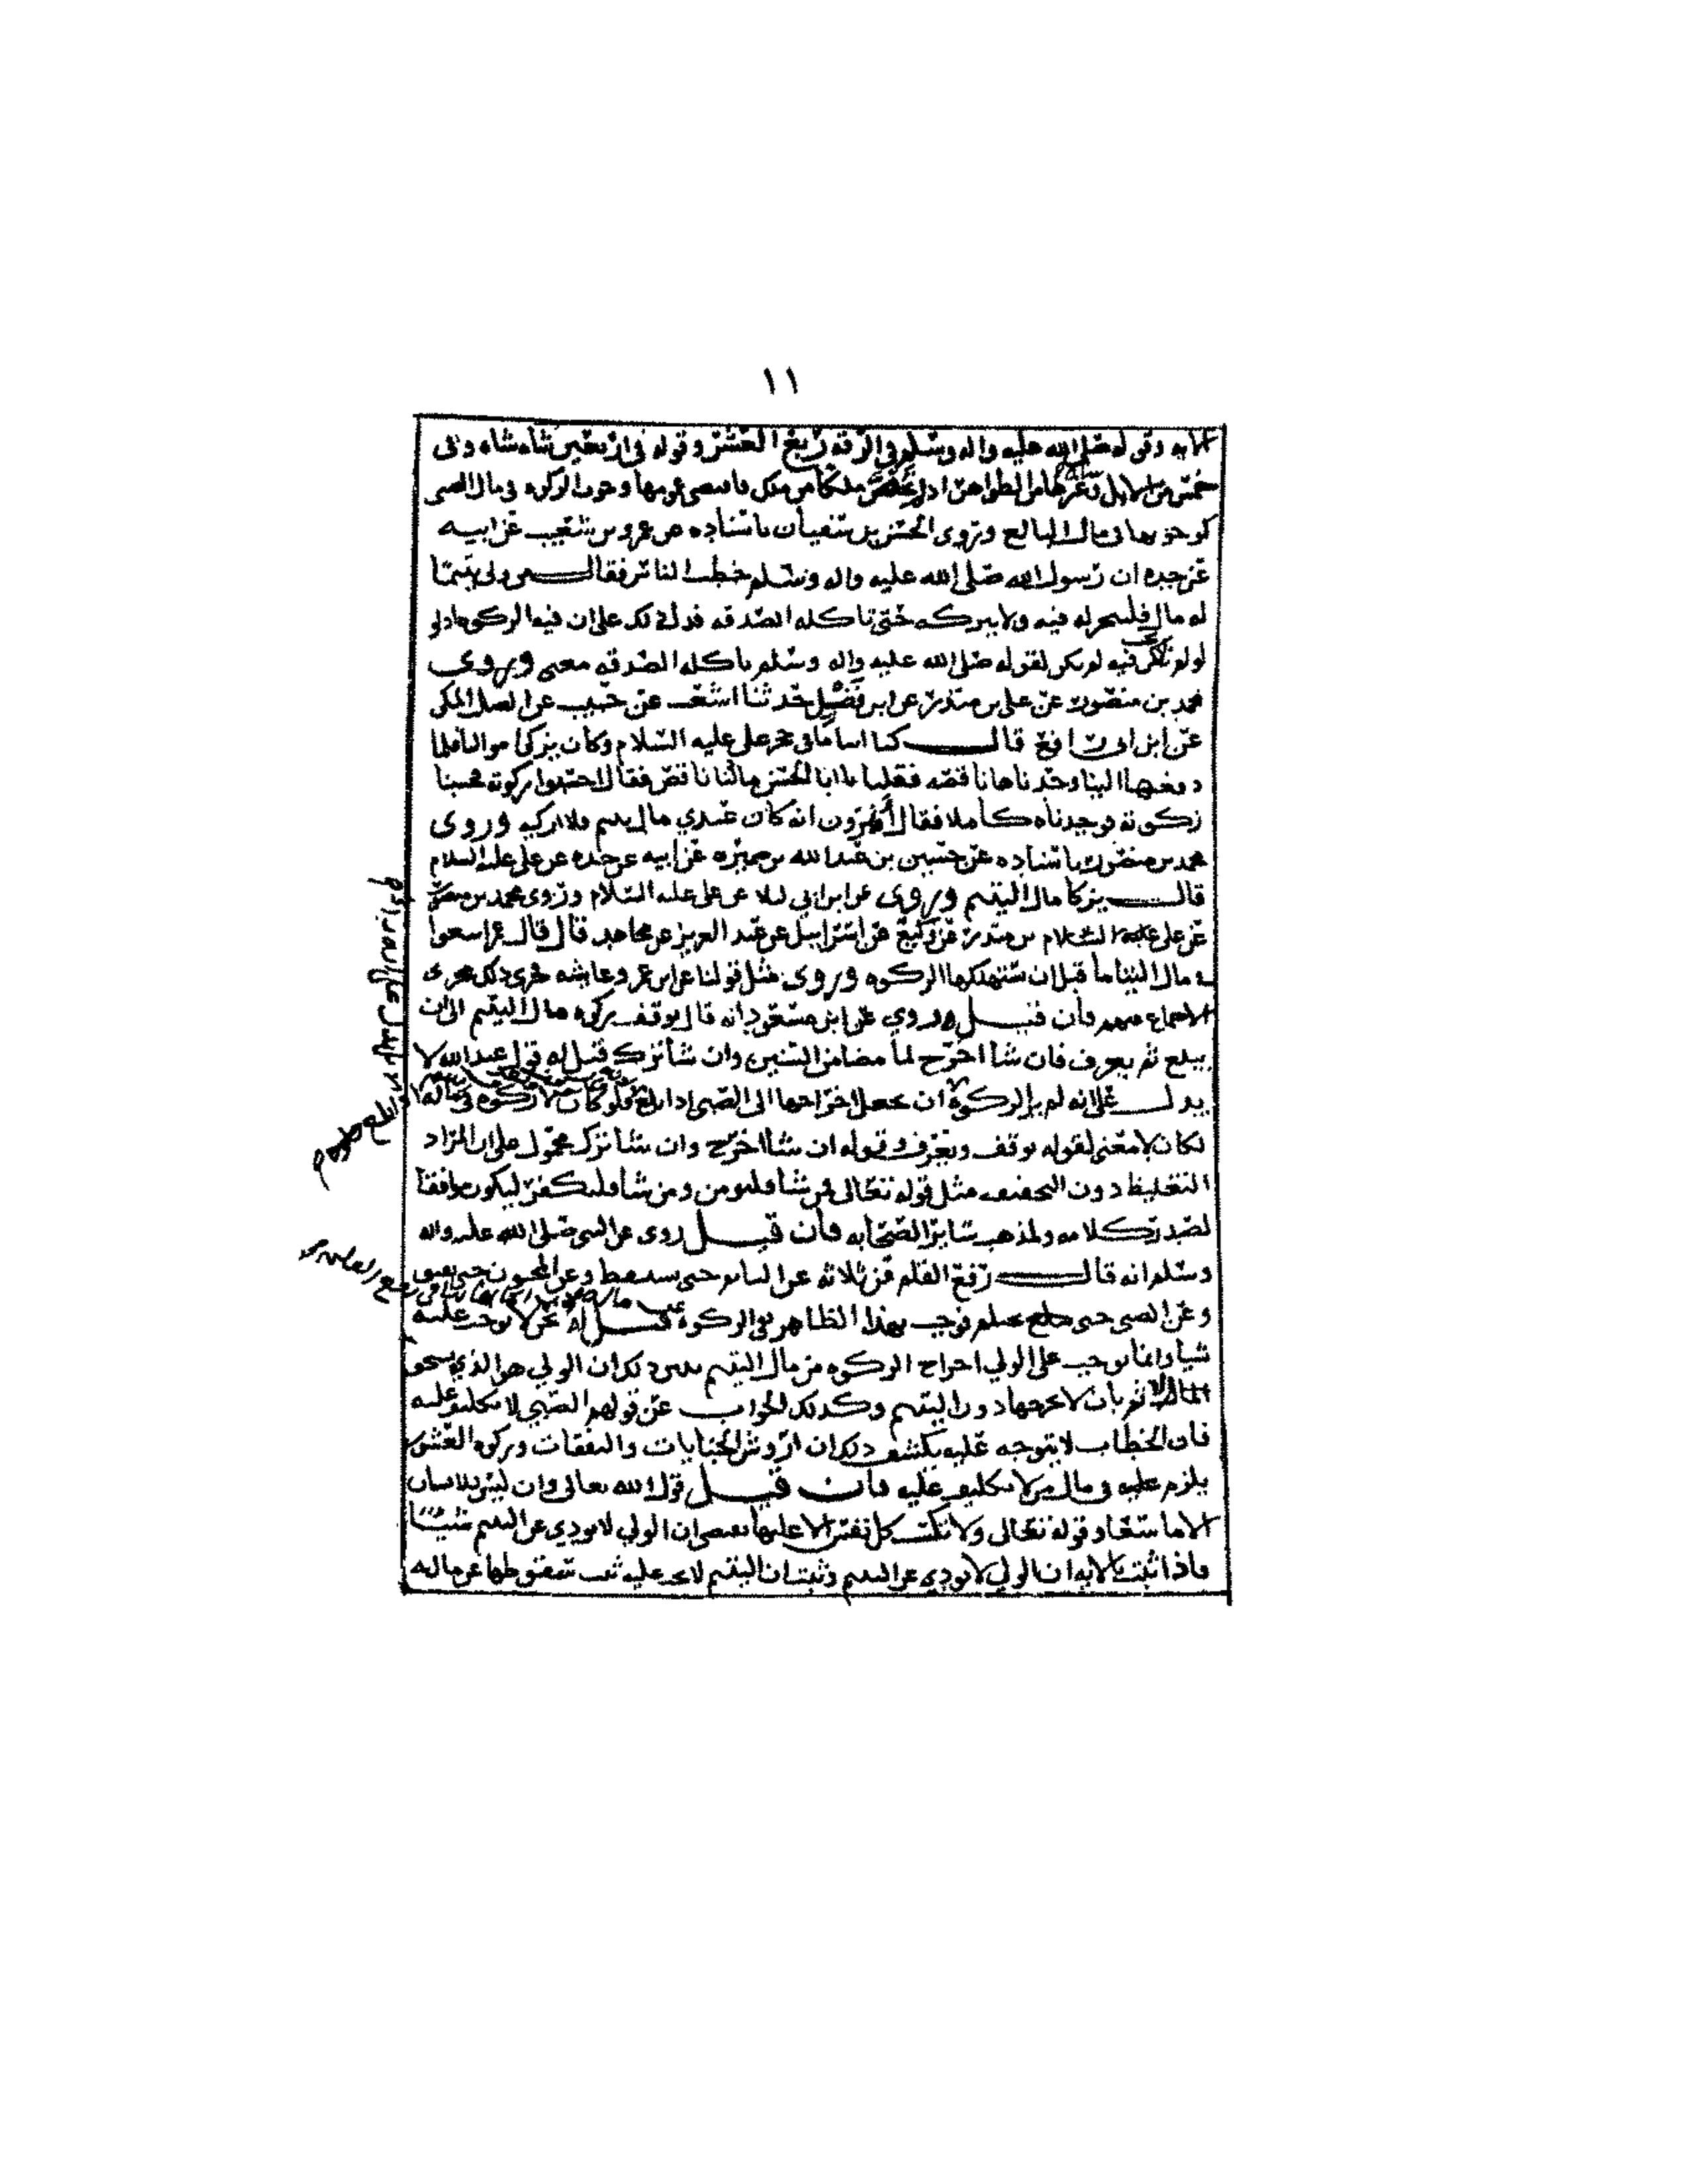 ١١
الايه وقوله صلى الله عليه واله وسلم وفي الرقه ربع العشر وقوله في اربعين شاه شاه وفي
خمس من الابل شاه وغيرها من الظواهر اذ لم يخص ملكا من ملك فاقتضى عمومها وجوب الزكوه في مال الصبي
كوجوبها في مال البالغ وروى الحسن بن سفيان باسناده عن عمرو بن شعيب عن ابيه
عن جده ان رسول الله صلى الله عليه واله وسلم خطب الناس فقال من ولي يتيما
له مال فليتجر له فيه ولا يتركه حتى تاكله الصدقه فدل ذلك على ان فيه الزكوه اذ لو
لو لم تكن تجب فيه لم يكن لقوله صلى الله عليه واله وسلم تاكله الصدقه معنى وروى
محمد بن منصور عن علي بن منذر عن ابن فضيل حدثنا اشعث عن حبيب عن المكي
عن ابن ابي رافع قال كنا ايتاما في حجر علي عليه السلام وكان يزكي اموالنا فلما
دفعها الينا وجدناها ناقصه فقلنا يا ابا الحسن مالنا ناقص فقال احسبوا زكوته فحسبنا
زكوته فوجدناه كاملا فقال أفترون انه كان عندي مال يتيم فلا ازكيه وروى
محمد بن منصور باسناده عن حسين بن عبد الله بن ضميره عن ابيه عن جده عن علي عليه السلام
قال يزكا مال اليتيم وروى عن ابن ابي ليلا عن علي عليه السلام وروى محمد بن منصور
عن علي بن منذر عن وكيع عن اسرائيل عن عبد العزيز عن مجاهد قال قال عمر ابتغوا
في مال اليتاما قبل ان تستهلكها الزكوه وروى مثل قولنا عن ابن عمر وعايشه فجرى ذلك مجرى
الاجماع منهم فان قيل فقد روي عن ابن مسعود انه قال توقف زكوه مال اليتيم الى ان
يبلغ ثم يعرف فان شا اخرج لما مضا من السنين وان شا ترك قيل له قول عبد الله لا
يدل على انه لم ير الزكوه ان جعل اخراجها الى الصبي اذا بلغ فلو كان لا زكوه في ماله
لكان لا معنى لقوله توقف ويعرف وقوله ان شا اخرج وان شا ترك محمول على ان المراد
التغليظ دون التخفيف مثل قوله تعالى فمن شا فليومن ومن شا فليكفر ليكون موافقا
لصدر كلامه ولمذهب سائر الصحابه فان قيل روى عن النبي صلى الله عليه واله
وسلم انه قال رفع القلم عن ثلاثه عن النايم حتى يستيقظ وعن المجنون حتى يفيق
وعن الصبي حتى يحتلم فوجب بهذا الظاهر نفي الزكوه قيل له نحن لا نوجب عليه
شيا وانما نوجب على الولي اخراج الزكوه من مال اليتيم يبين ذلك ان الولي هو الذي يستحق
الاثم بان لا يخرجها دون اليتيم وكذلك الجواب عن قولهم الصبي لا تكليف عليه
فان الخطاب لا يتوجه عليه يكشف ذلك ان اروش الجنايات والنفقات وزكوه العشر
يلزم عليه في مال من لا تكليف عليه فان قيل قول الله تعالى وان ليس للانسان
الا ما سعا وقوله تعالى ولا تكسب كل نفس الا عليها يقتضي ان الولي لا يودي عن اليتيم شيئا
فاذا ثبت بالايه ان الولي لا يودي عن اليتيم وثبت ان اليتيم لا يجب عليه ثبت سقوطها عن ماله